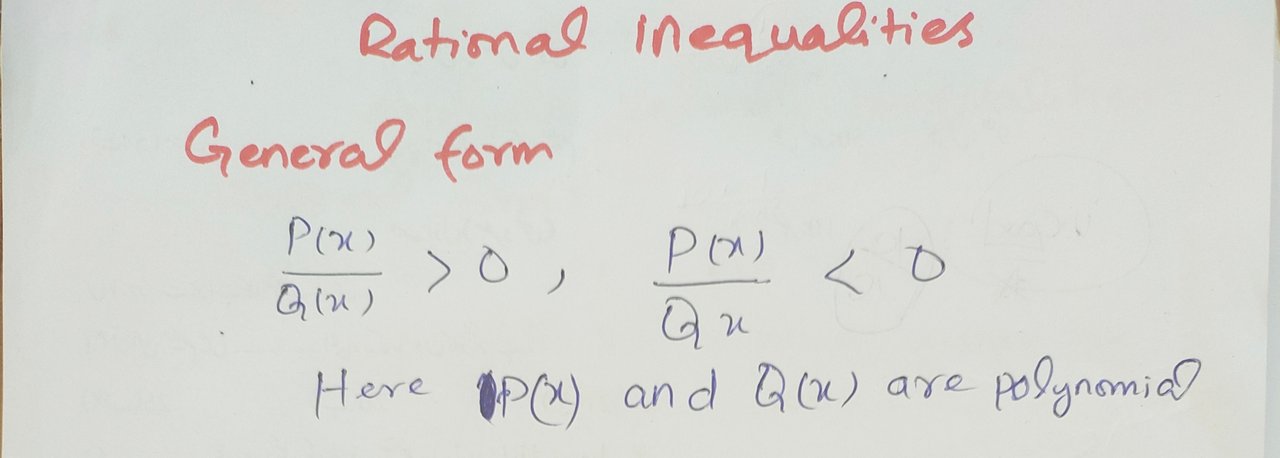 Rational inequalities
General form
P(x)/Q(x) > 0 , P(x)/Q x < 0
Here P(x) and Q(x) are polynomial